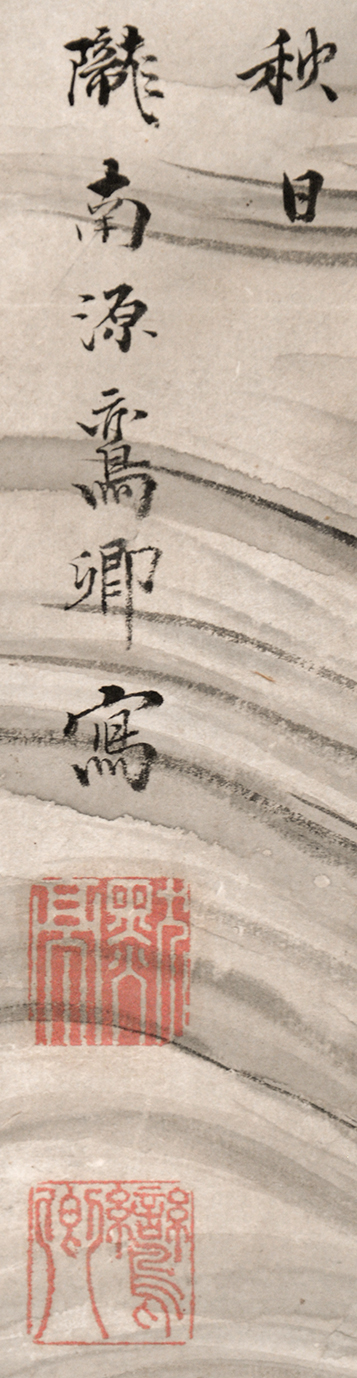 秋日
隴南源鸞卿寫
鸞卿